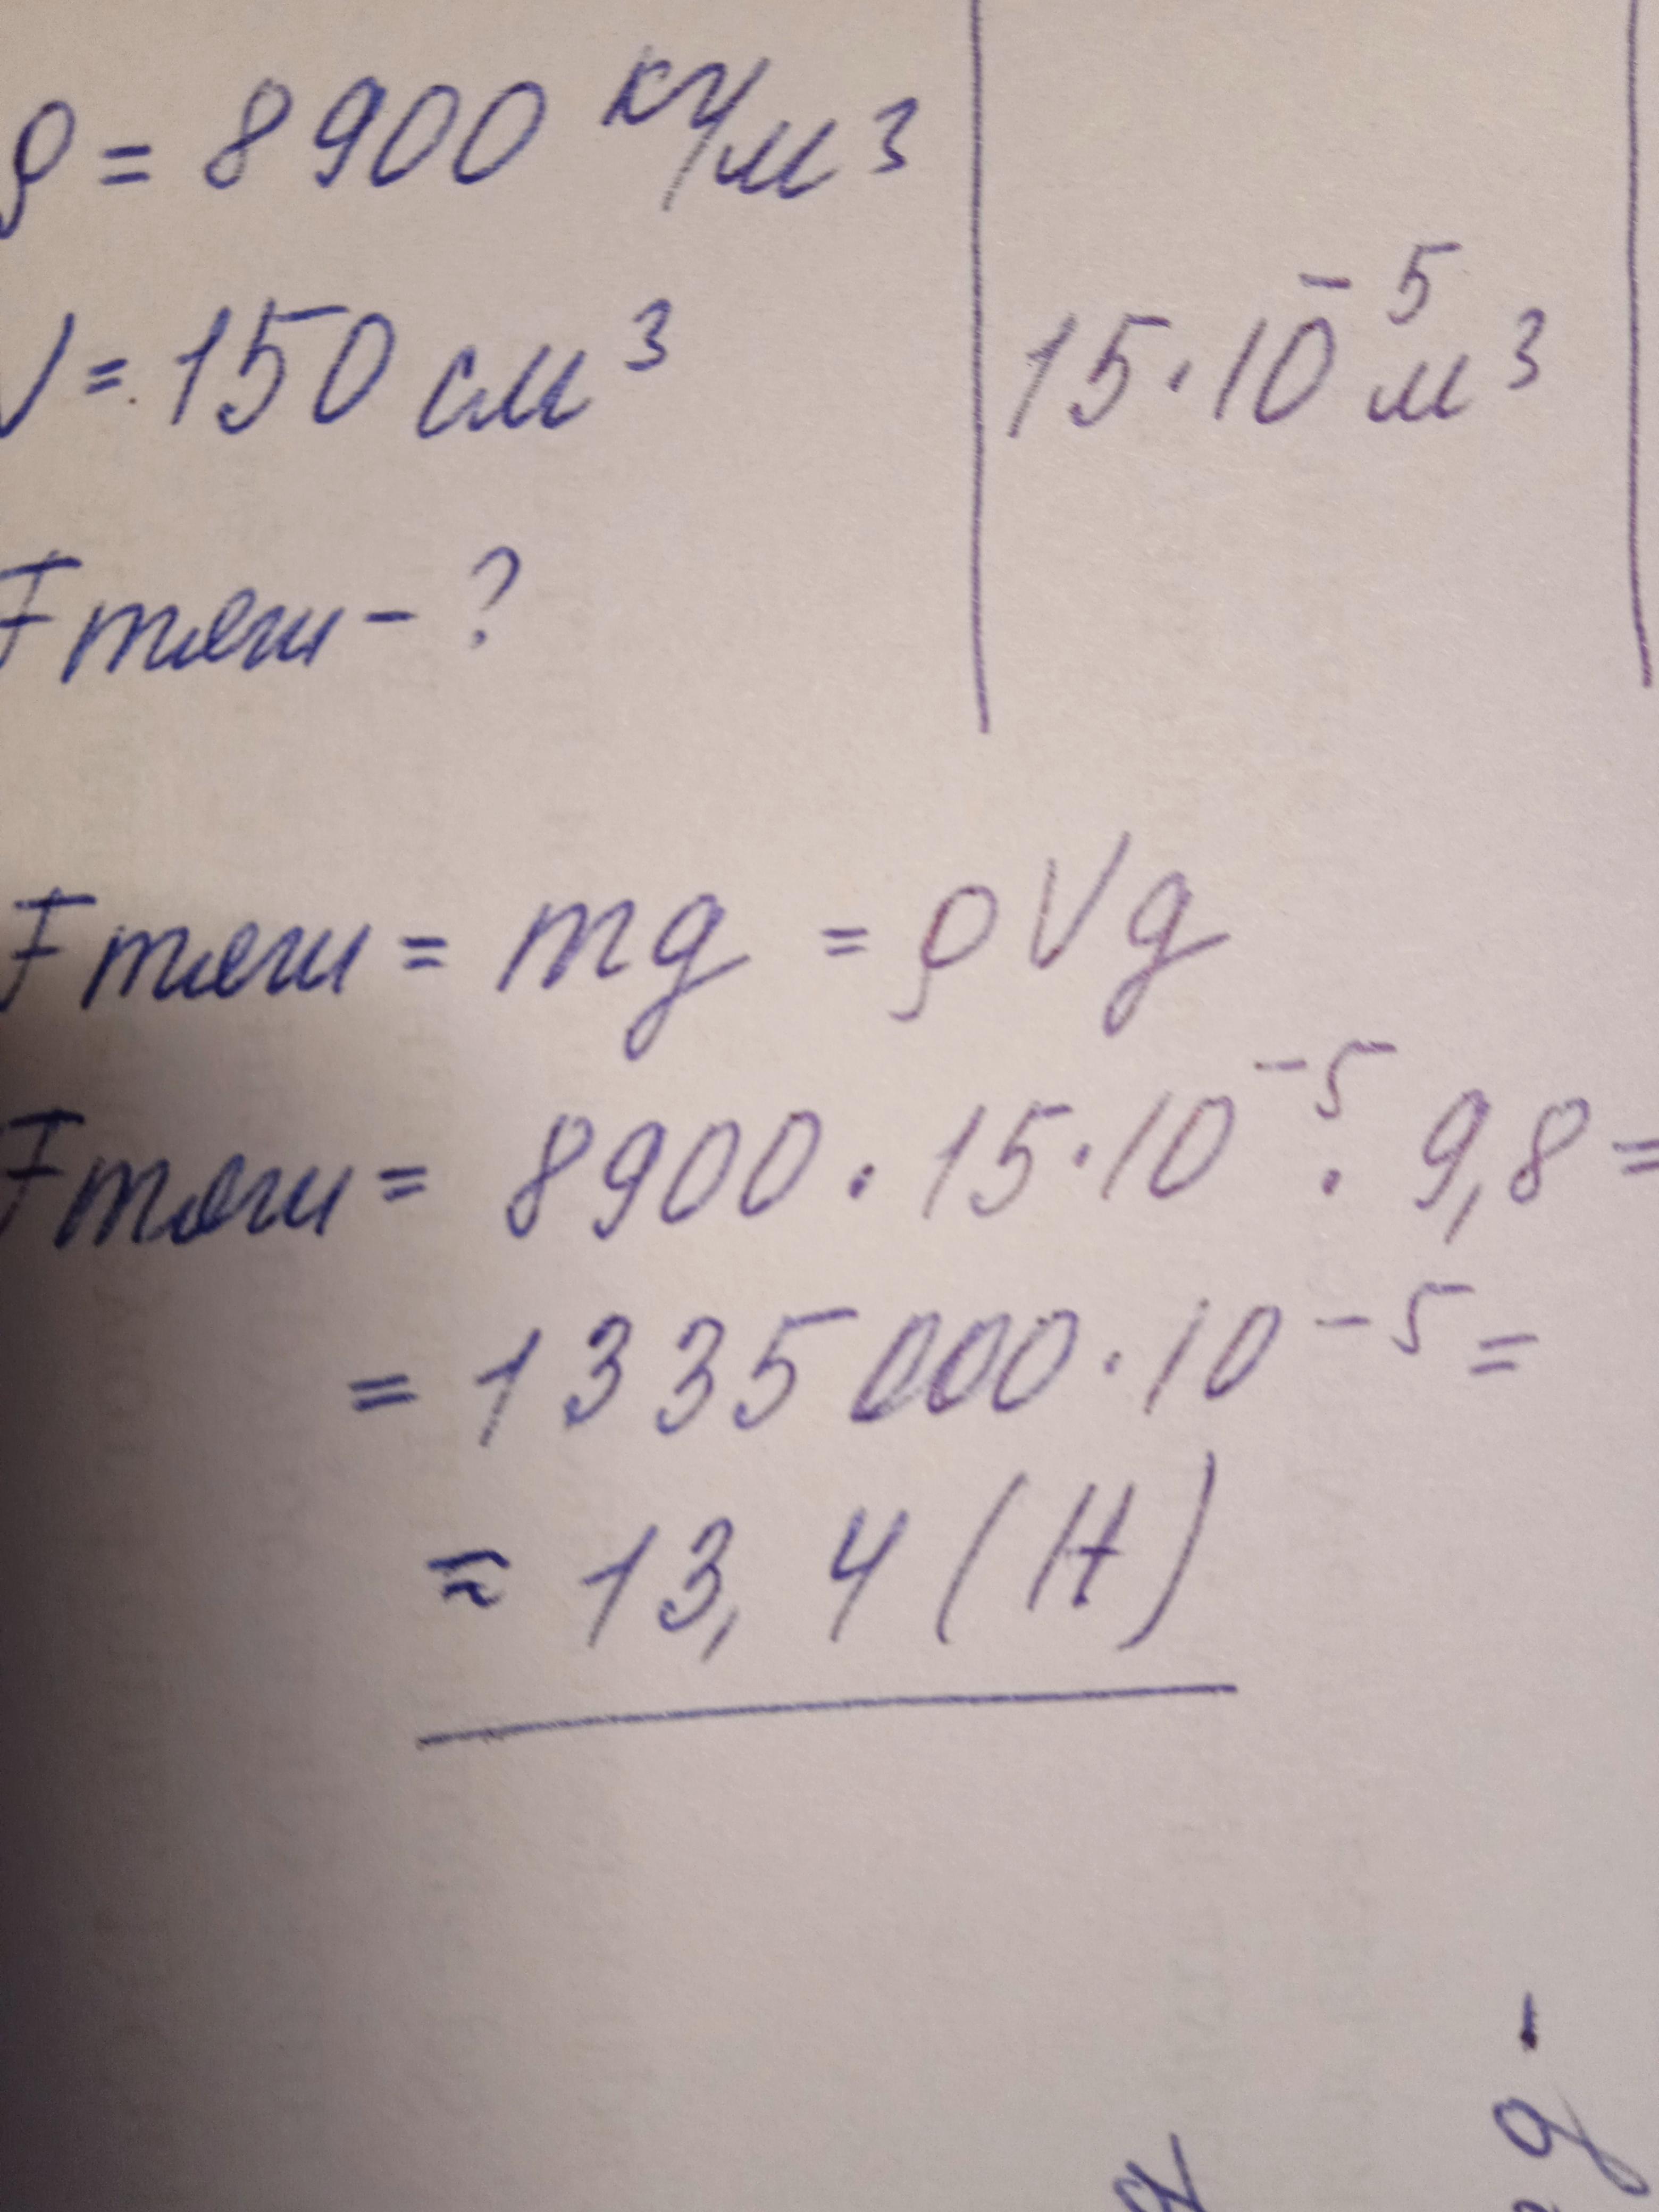 ρ = 8900 кг/м³
V = 150 см³ | 15·10⁻⁵ м³
Fтяги - ?
Fтяги = mg = ρVg
Fтяги = 8900 · 15·10⁻⁵ · 9,8 =
= 1335000·10⁻⁵ =
≈ 13,4 (Н)